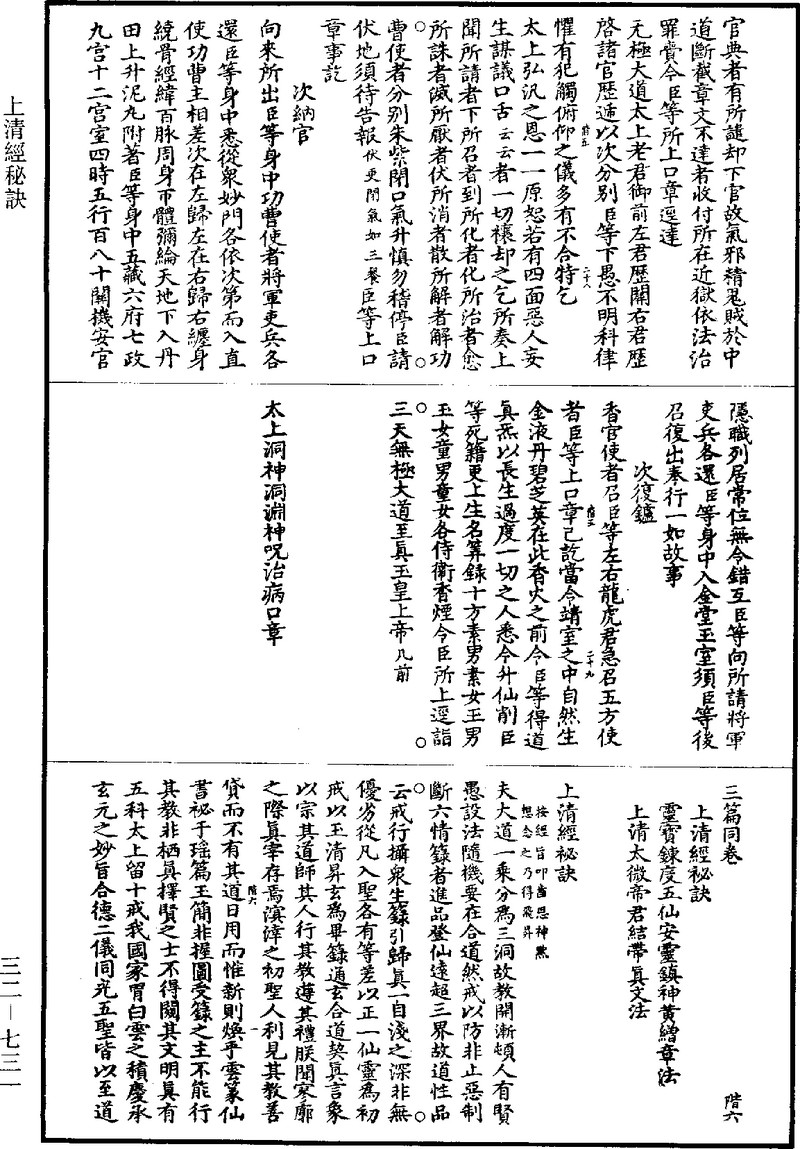 官典者有所譴却下官故氣邪精鬼賊於中
道斷截章文不達者收付所在近獄依法治
罪賞今臣等所上口章逕達
无極大道太上老君御前左君歷關右君歷
啓諸官歷遞以次分別臣等下愚不明科律
懼有犯觸俯仰之儀多有不合特乞
階五
二十八
太上弘汎之恩一一原恕若有四面惡人妄
生謀議口舌云云者一切禳却之乞所奏上
聞所請者下所召者到所化者化所治者愈
所誅者滅所厭者伏所消者散所解者解功
曹使者分別朱紫閉口氣升慎勿稽停臣請
伏地須待告報伏更閉氣如三飡臣等上口
章事訖
次納官
向來所出臣等身中功曹使者將軍吏兵各
還臣等身中悉從衆妙門各依次第而入直
使功曹主相差次在左歸左在右歸右纏身
繞骨經緯百脉周身帀體彌綸天地下入丹
田上升泥丸附著臣等身中五藏六府七政
九宫十二宫室四時五行百八十關機安官
隱職列居常位無令錯互臣等向所請將軍
吏兵各還臣等身中入金堂玉室須臣等後
召復出奉行一如故事
次復鑪
香官使者召臣等左右龍虎君急召五方使
者臣等上口章已訖當令靖室之中自然生
階五
二十九
金液丹碧芝英在此香火之前令臣等得道
真炁以長生過度一切之人悉令升仙削臣
等死籍更上生名筭錄十方素男素女玉男
玉女童男童女各侍衛香煙令臣所上逕詣
三天無極大道至真玉皇上帝几前
太上洞神洞淵神呪治病口章
三篇同卷
階六
上清經秘訣
靈寶鍊度五仙安靈鎮神黄繒章法
上清太微帝君結帶真文法
上清經祕訣
按經旨叩齒思神默
想念之乃得飛昇
夫大道一乘分為三洞故教開漸頓人有賢
愚設法隨機要在合道然戒以防非止惡制
斷六情籙者進品登仙遠超三界故道性品
云戒行攝衆生籙引歸真一自淺之深非無
優劣從凡入聖各有等差以正一仙靈為初
戒以玉清昇玄為畢籙通玄合道契真言象
以宗其道師其人行其教遵其禮朕聞寥廓
之際真宰存焉溟涬之初聖人利見其教善
階六
一
貸而不有其道日用而惟新則煥乎雲篆仙
書祕于瑶篇玉簡非握圖受籙之主不能行
其教非栖真擇賢之士不得闚其文明真有
五科太上留十戒我國家胃白雲之積慶承
玄元之妙旨合德二儀同光五聖皆以至道
上清經秘訣
三二—七三一